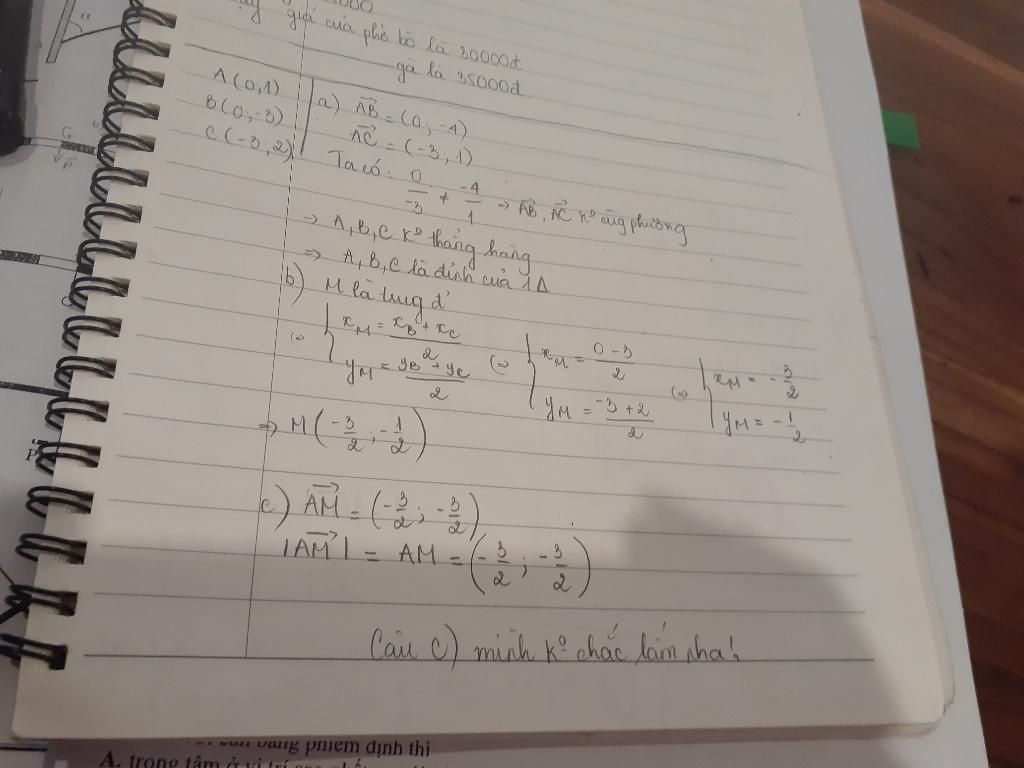 giá của phở bò là 30000đ
gà là 35000đ
A(0,1)
B(0,-3)
C(-3,2)
a) AB⃗ = (0,-4)
AC⃗ = (-3,1)
Ta có: 0/-3 ≠ -4/1 → AB⃗, AC⃗ kº cùng phương
→ A,B,C kº thẳng hàng
⇒ A,B,C là đỉnh của 1Δ
b) M là trung đ'
⇔ { xM = (xB + xC)/2 ⇔ { xM = (0-3)/2 ⇔ { xM = -3/2
yM = (yB + yC)/2 yM = (-3+2)/2 yM = -1/2
⇒ M(-3/2; -1/2)
c) AM⃗ = (-3/2; -3/2)
|AM⃗| = AM = (-3/2; -3/2)
Câu C) mình kº chắc lắm nha!
bằng phiếm định thì
A. trọng tâm ở vị trí